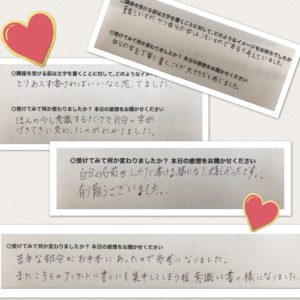 ◎講座を受ける前は文字を書くことに対して、どのようなイメージをお持ちでしたか
◎受けてみて何か変わりましたか？ 本日の感想をお聞かせください
自分の字を丁寧に書くことが大切だと感じました。
◎講座を受ける前は文字を書くことに対して、どのようなイメージ
とりあえず書ければいいなと思ってました。
◎受けてみて何か変わりましたか？ 本日の感想をお聞かせください
ほんの少し意識するだけで自分の字が
げきてきに変わったのがわかりました。
◎受けてみて何か変わりましたか？ 本日の感想をお聞かせください
自分の名前をしっかりと書ける様になり、嬉しかったです。
有難うございました。
◎受けてみて何か変わりましたか？ 本日の感想をお聞かせください
苦手な部分がお手本にあったので参考になりました。
またこちらのアンケートに書くにも集中してしまう程、意識して書く様になりました。